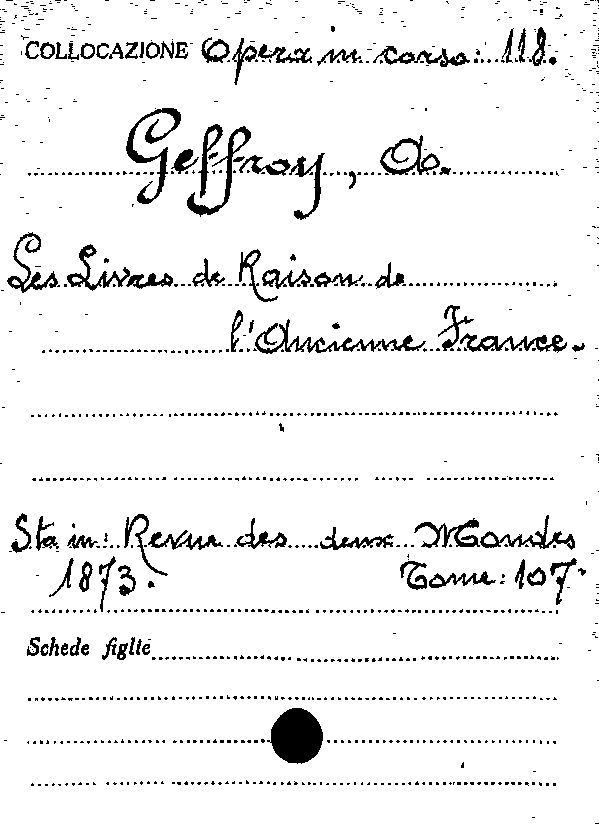 COLLOCAZIONE Opera in corso: 118.
Geffroy, A.
Les Livres de Raison de
l'Ancienne France.
Sta in: Revue des deux Mondes
1873. Tome: 107.
Schede figlie